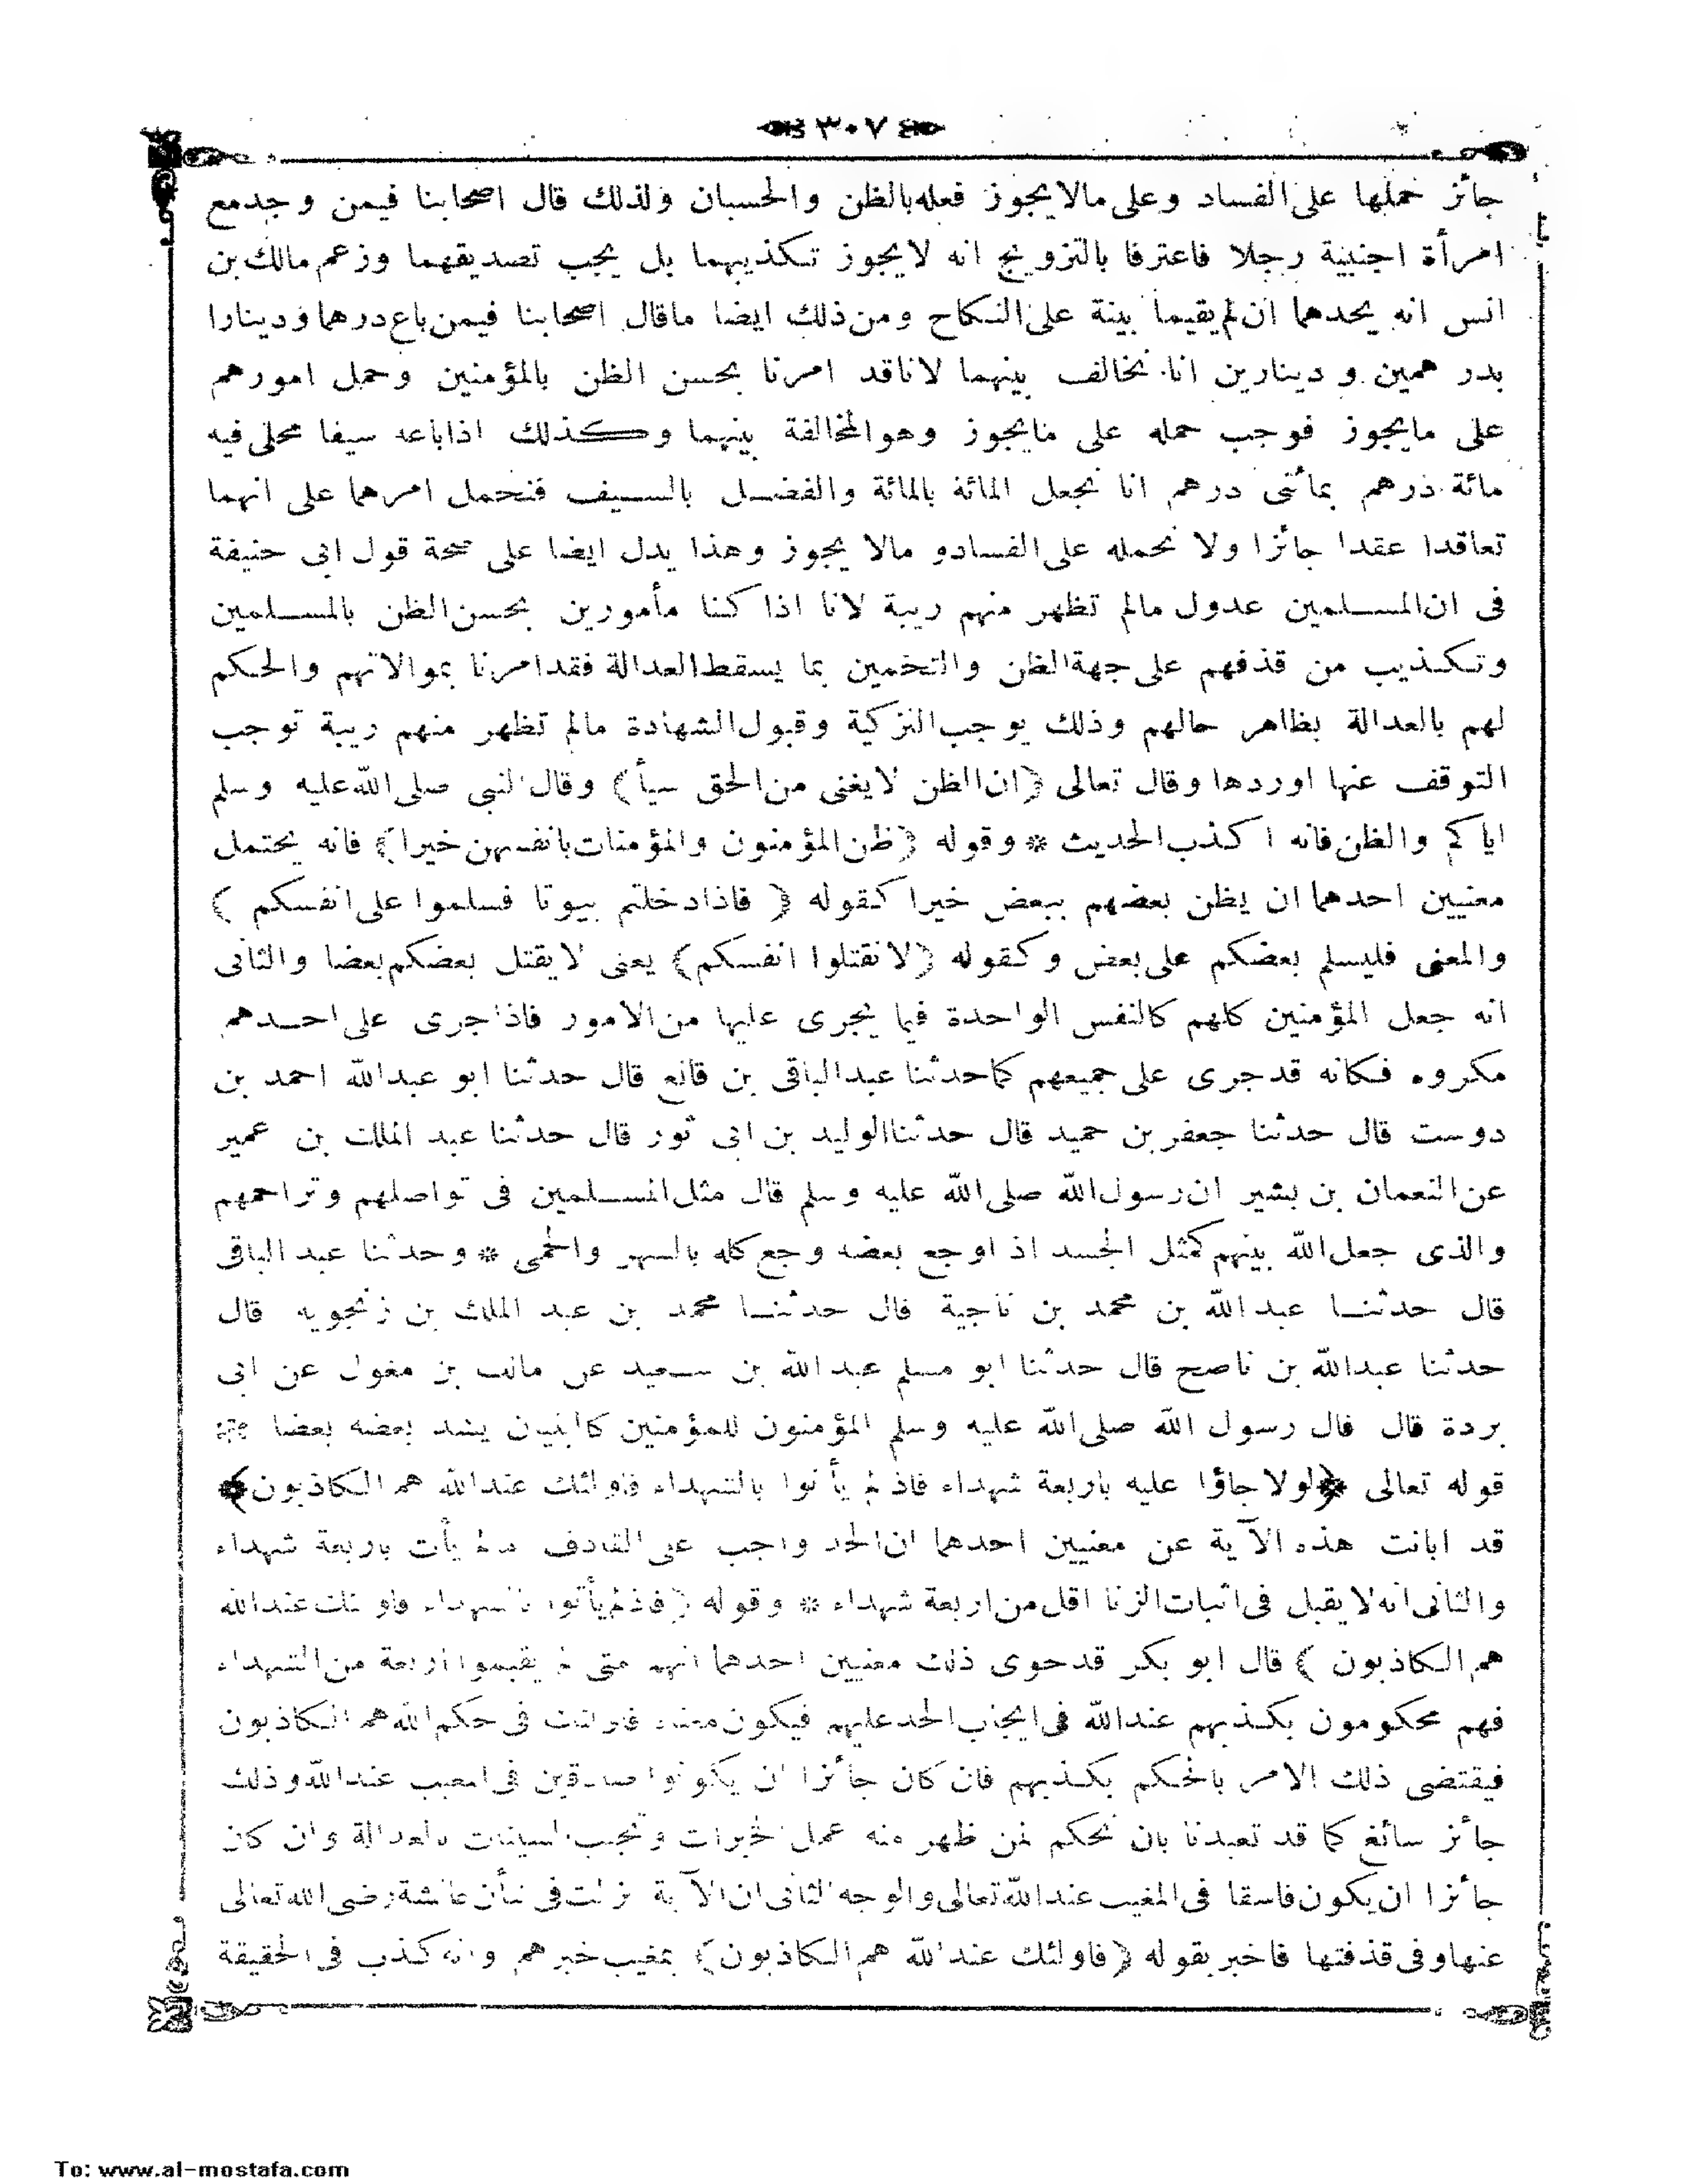 ٣٠٧
جائز حملها على الفساد وعلى مالا يجوز فعله بالظن والحسبان ولذلك قال اصحابنا فيمن وجد مع
امرأة اجنبية رجلا فاعترفا بالتزويج انه لا يجوز تكذيبهما بل يجب تصديقهما وزعم مالك بن
انس انه يحدهما ان لم يقيما بينة على النكاح ومن ذلك ايضا ماقال اصحابنا فيمن باع درهما ودينارا
بدرهمين ودينارين انا نخالف بينهما لانا قد امرنا بحسن الظن بالمؤمنين وحمل امورهم
على مايجوز فوجب حمله على مايجوز وهو المخالفة بينهما وكذلك اذا باعه سيفا محلى فيه
مائة درهم بمائتى درهم انا نجعل المائة بالمائة والفضل بالسيف فنحمل امرهما على انهما
تعاقدا عقدا جائزا ولا نحمله على الفساد و مالا يجوز وهذا يدل ايضا على صحة قول ابى حنيفة
فى ان المسلمين عدول مالم تظهر منهم ريبة لانا اذا كنا مأمورين بحسن الظن بالمسلمين
وتكذيب من قذفهم على جهة الظن والتخمين بما يسقط العدالة فقد امرنا بموالاتهم والحكم
لهم بالعدالة بظاهر حالهم وذلك يوجب التزكية وقبول الشهادة مالم تظهر منهم ريبة توجب
التوقف عنها اوردها وقال تعالى ﴿ان الظن لايغنى من الحق شيأ﴾ وقال النبى صلى الله عليه وسلم
اياكم والظن فانه اكذب الحديث * وقوله ﴿ظن المؤمنون والمؤمنات بانفسهن خيرا﴾ فانه يحتمل
معنيين احدهما ان يظن بعضهم ببعض خيرا كقوله ﴿ فاذا دخلتم بيوتا فسلموا على انفسكم ﴾
والمعنى فليسلم بعضكم على بعض وكقوله ﴿لاتقتلوا انفسكم﴾ يعنى لايقتل بعضكم بعضا والثانى
انه جعل المؤمنين كلهم كالنفس الواحدة فيما يجرى عليها من الامور فاذا جرى على احدهم
مكروه فكانه قد جرى على جميعهم كما حدثنا عبد الباقى بن قانع قال حدثنا ابو عبدالله احمد بن
دوست قال حدثنا جعفر بن حميد قال حدثنا الوليد بن ابى ثور قال حدثنا عبد الملك بن عمير
عن النعمان بن بشير ان رسول الله صلى الله عليه وسلم قال مثل المسلمين فى تواصلهم وتراحمهم
والذى جعل الله بينهم كمثل الجسد اذ اوجع بعضه وجع كله بالسهر والحمى * وحدثنا عبد الباقى
قال حدثنا عبد الله بن محمد بن ناجية قال حدثنا محمد بن عبد الملك بن زنجويه قال
حدثنا عبدالله بن ناصح قال حدثنا ابو مسلم عبد الله بن سعيد عن مالك بن مغول عن ابى
بردة قال قال رسول الله صلى الله عليه وسلم المؤمنون للمؤمنين كالبنيان يشد بعضه بعضا *
قوله تعالى ﴿لولا جاؤا عليه باربعة شهداء فاذ لم يأتوا بالشهداء فاولئك عندالله هم الكاذبون﴾
قد ابانت هذه الآية عن معنيين احدهما ان الحد واجب على القاذف مالم يأت باربعة شهداء
والثانى انه لايقبل فى اثبات الزنا اقل من اربعة شهداء * وقوله ﴿فاذ لم يأتوا بالشهداء فاولئك عندالله
هم الكاذبون ﴾ قال ابو بكر قد حوى ذلك معنيين احدهما انهم متى لم يقيموا اربعة من الشهداء
فهم محكومون بكذبهم عندالله فى ايجاب الحد عليهم فيكون معناه فاولئك فى حكم الله هم الكاذبون
فيقتضى ذلك الامر بالحكم بكذبهم فان كان جائزا ان يكونوا صادقين فى المغيب عندالله وذلك
جائز سائغ كما قد تعبدنا بان نحكم لمن ظهر منه عمل الخيرات وتجنب السيئات بالعدالة وان كان
جائزا ان يكون فاسقا فى المغيب عندالله تعالى والوجه الثانى ان الآية نزلت فى شأن عائشة رضى الله تعالى
عنها وفى قذفتها فاخبر بقوله ﴿فاولئك عند الله هم الكاذبون﴾ بمغيب خبرهم وانه كذب فى الحقيقة
To: www.al-mostafa.com